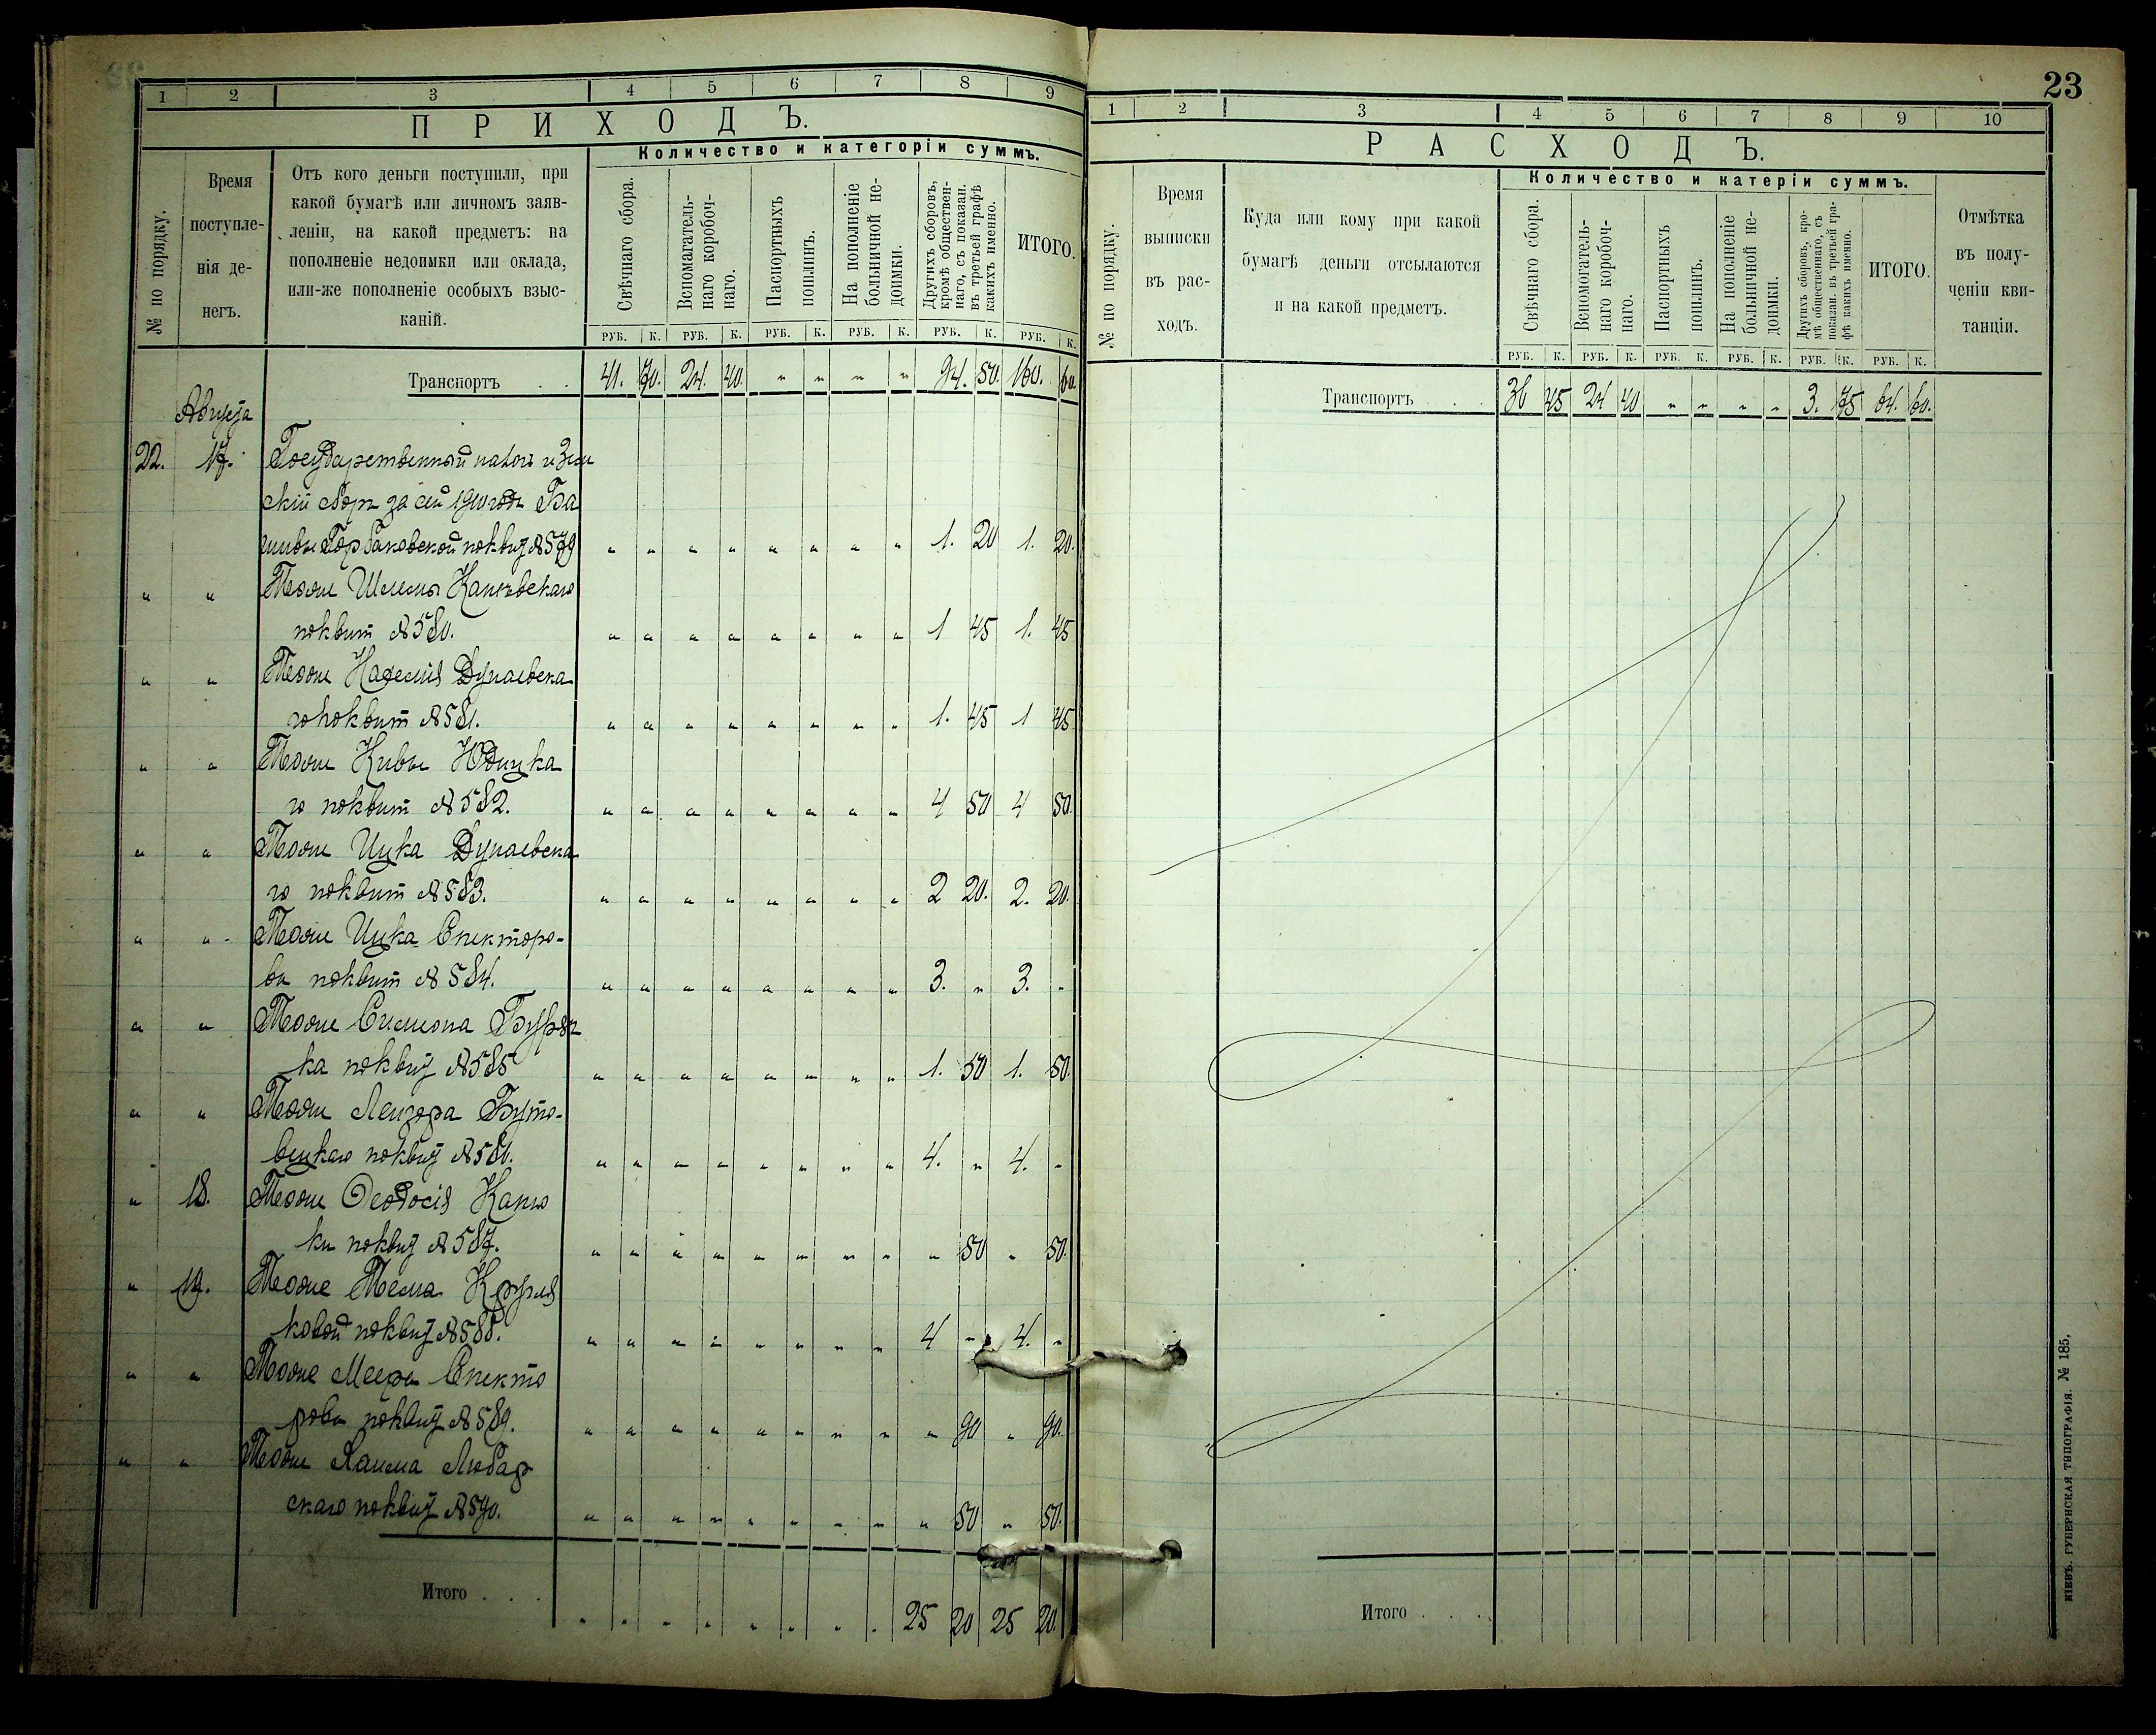 23
1 2 3 4 5 6 7 8 9
ПРИХОДЪ.
№ по порядку.
Время поступле-
нія де-
негъ.
Отъ кого деньги поступили, при
какой бумагѣ или личномъ заяв-
леніи, на какой предметъ: на
пополненіе недоимки или оклада,
или-же пополненіе особыхъ взыс-
каній.
Количество и категоріи суммъ.
Свѣчнаго сбора.
Вспомагатель-
наго коробоч-
наго.
Паспортныхъ
пошлинъ.
На пополненіе
больничной не-
доимки.
Другихъ сборовъ,
кромѣ обществен-
наго, съ показан.
въ третьей графѣ
какихъ именно.
ИТОГО.
РУБ. К. РУБ. К. РУБ. К. РУБ. К. РУБ. К. РУБ. К.
Транспортъ . . 41. 70. 24. 40. " " " " 94. 50. 160. 60.
Августа
22. 17. Государственный налогъ и Зем
скій сборъ за сей 1910 годъ Ба
Горбаковской по квит № 579 " " " " " " " " 1. 20 1. 20.
" " Тоже Шлемы Каневскаго
по квит № 580. " " " " " " " " 1 45 1. 45
" " Тоже Дунаевска
го по квит № 581. " " " " " " " " 1. 45 1 45
" " Тоже Кивы Юдицка
го по квит № 582. " " " " " " " " 4 50 4 50.
" " Тоже Ицка Дунаевска
го по квит № 583. " " " " " " " " 2 20. 2. 20.
" " Тоже Ицка Спекторо-
ва по квит № 584. " " " " " " " " 3. " 3. "
" " Тоже Симона Буря
ка по квит № 585 " " " " " " " " 1. 50 1. 50.
" " Тоже Лейзера Буто-
вецкаго по квит № 586. " " " " " " " " 4. " 4. "
" 18. Тоже Феодосія Каню
ки по квит № 587. " " " " " " " " " 50 " 50.
" 19. Тоже Круля
ковой по квит № 588. " " " " " " " " 4 " 4. "
" " Тоже Меера Спекто
рова по квит № 589. " " " " " " " " " 90 " 90.
" " Тоже Хаима Любар
скаго по квит № 590. " " " " " " " " " 50 " 50.
Итого . . . " " " " " " " " 25 20 25 20.
1 2 3 4 5 6 7 8 9 10
РАСХОДЪ.
№ по порядку.
Время
выписки
въ рас-
ходъ.
Куда или кому при какой
бумагѣ деньги отсылаются
и на какой предметъ.
Количество и катеріи суммъ.
Свѣчнаго сбора.
Вспомогатель-
наго коробоч-
наго.
Паспортныхъ
пошлинъ.
На пополненіе
больничной не-
доимки.
Другихъ сборовъ, кро-
мѣ общественнаго, съ
показан. въ третьей гра-
фѣ какихъ именно.
ИТОГО.
Отмѣтка
въ полу-
ченіи кви-
танціи.
РУБ. К. РУБ. К. РУБ. К. РУБ. К. РУБ. К. РУБ. К.
Транспортъ . . . 36 45 24 40 " " " " 3. 75 64. 60.
Итого . . .
КІЕВЪ. ГУБЕРНСКАЯ ТИПОГРАФІЯ. № 185,